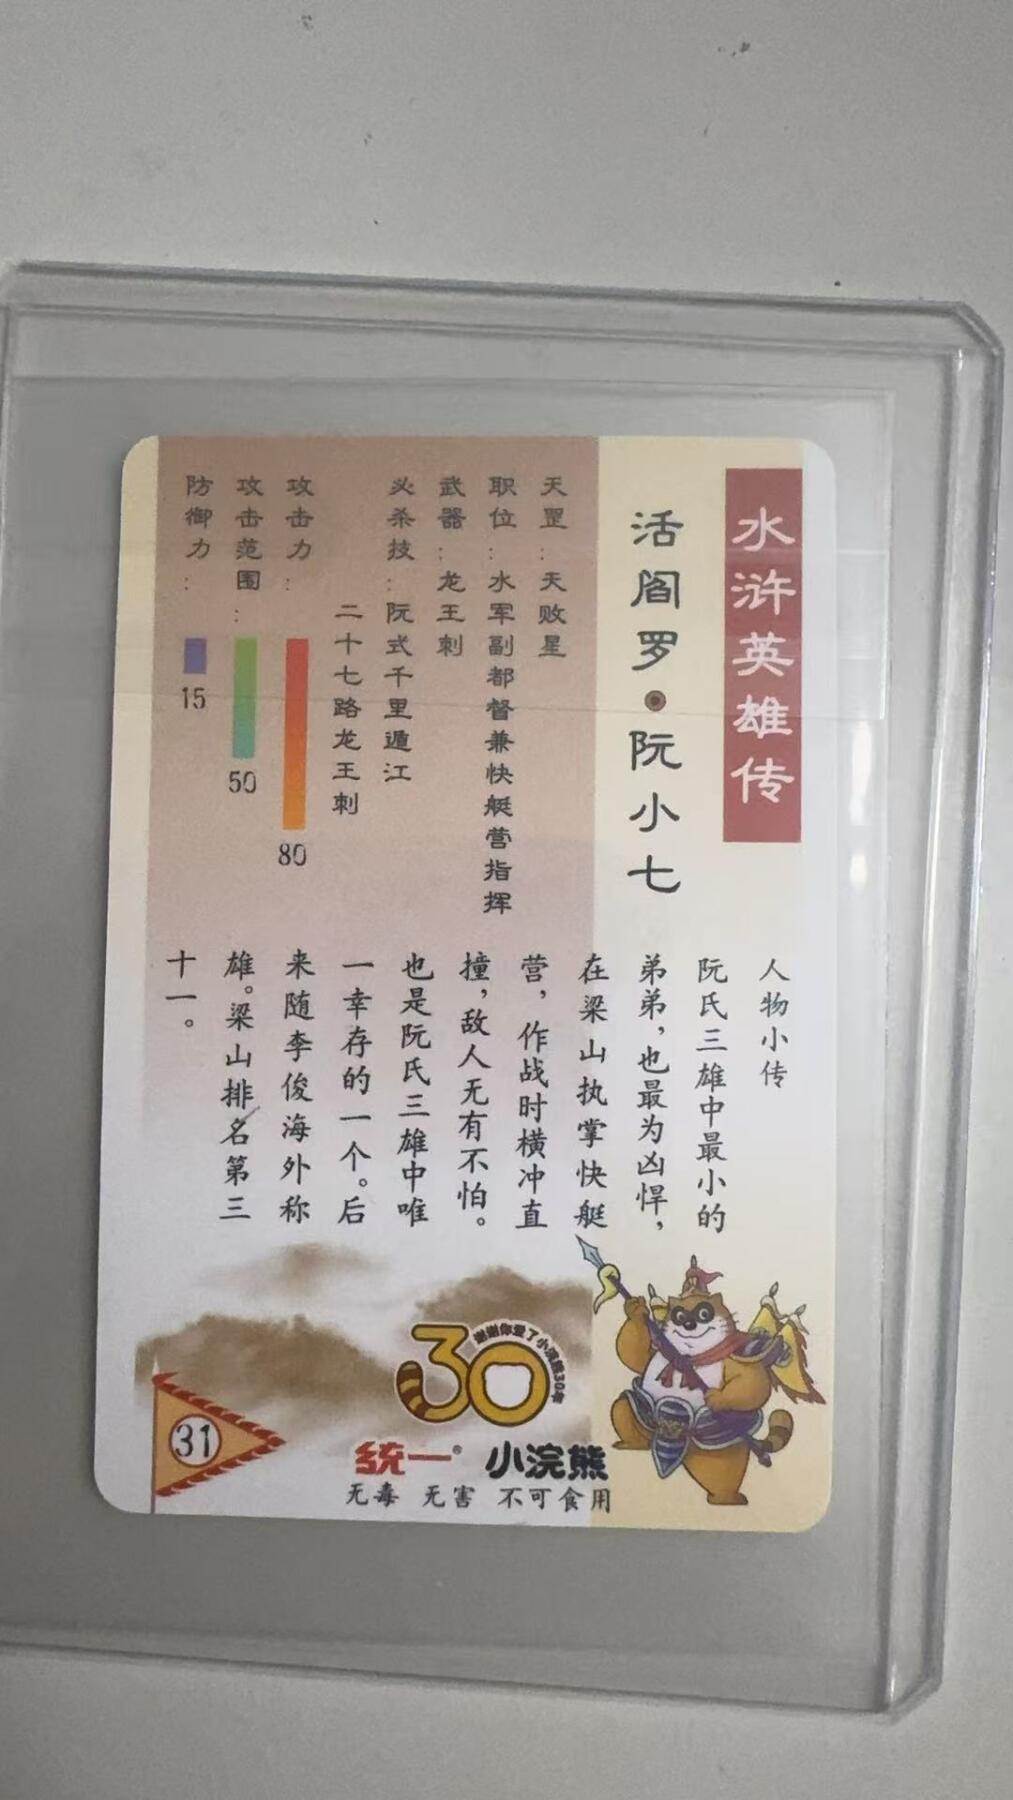 水浒英雄传
活阎罗·阮小七
天罡：天败星
职位：水军副都督兼快艇营指挥
武器：龙王刺
必杀技：阮式千里遁江
二十七路龙王刺
攻击力：
80
攻击范围：
50
防御力：
15
人物小传
阮氏三雄中最小的
弟弟，也最为凶悍，
在梁山执掌快艇
营，作战时横冲直
撞，敌人无有不怕。
也是阮氏三雄中唯
一幸存的一个。后
来随李俊海外称
雄。梁山排名第三
十一。
31
30
谢谢你爱了小浣熊30年
统一® 小浣熊
无毒 无害 不可食用